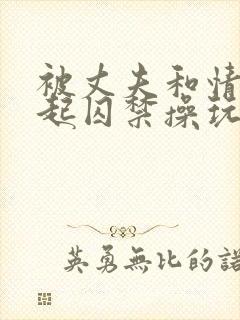 被丈夫和情
起囚禁操玩
英勇無比的諾